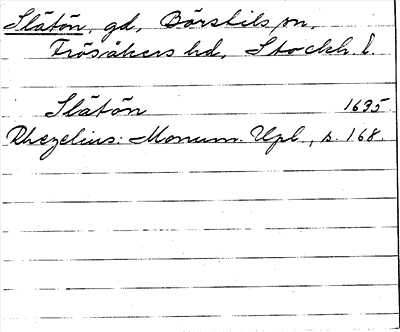 Slätön, gd, Börstils sn,
Frösåkers hd, Stockh. l.
Slätön 1635.
Rhezelius: Monum. Upl., s. 168.